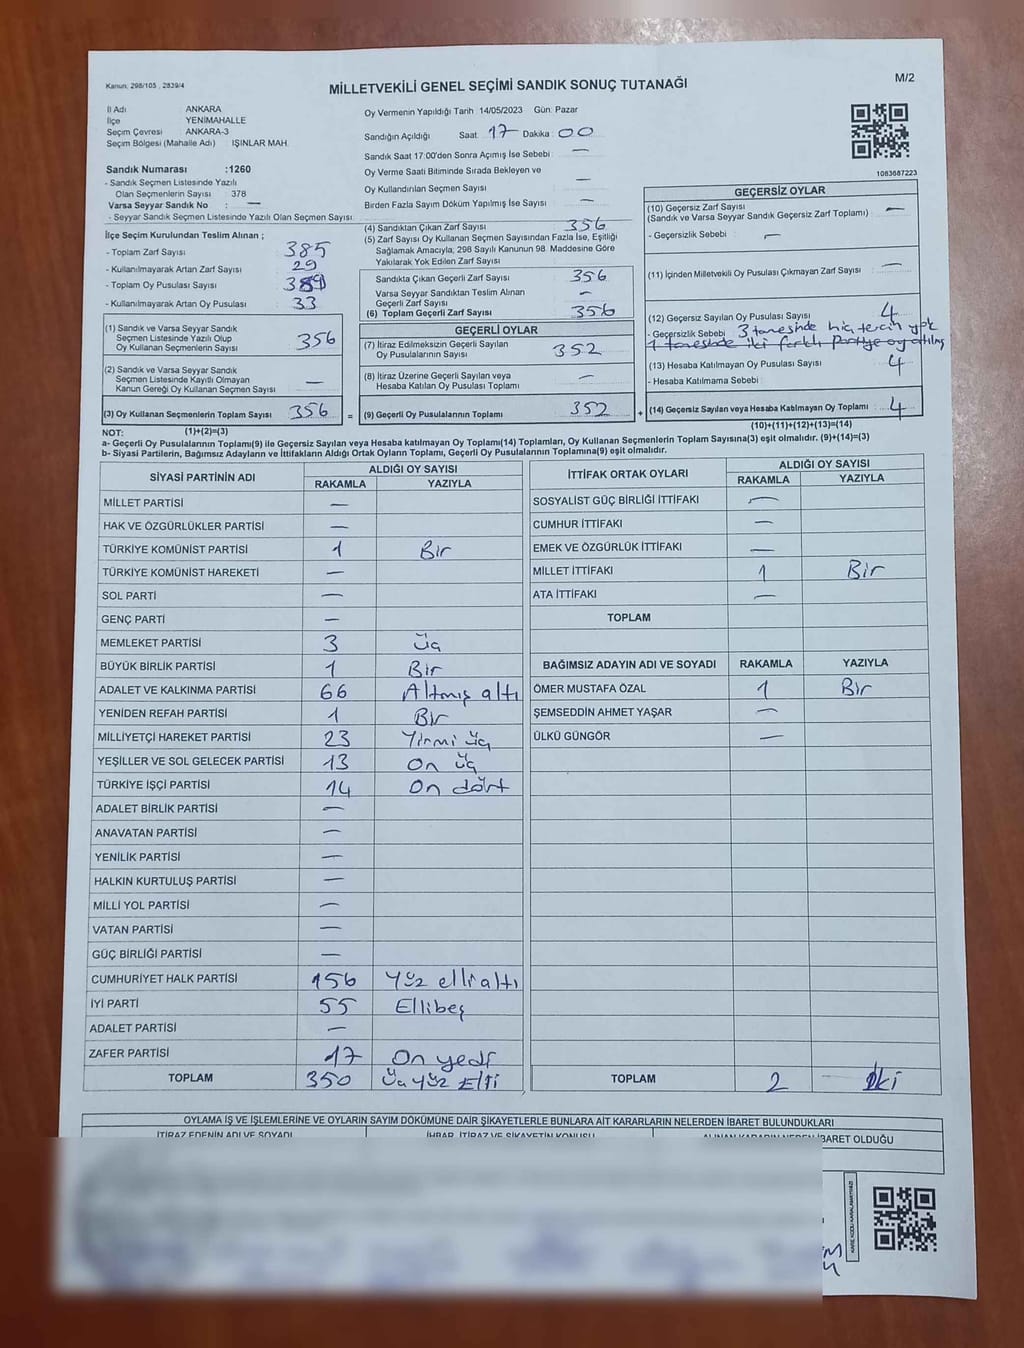 Kanun: 298/105 , 2839/4
MİLLETVEKİLİ GENEL SEÇİMİ SANDIK SONUÇ TUTANAĞI
M/2
İl Adı ANKARA
İlçe YENİMAHALLE
Seçim Çevresi ANKARA-3
Seçim Bölgesi (Mahalle Adı) IŞINLAR MAH.
Sandık Numarası :1260
- Sandık Seçmen Listesinde Yazılı
Olan Seçmenlerin Sayısı 378
Varsa Seyyar Sandık No : —
- Seyyar Sandık Seçmen Listesinde Yazılı Olan Seçmen Sayısı:
Oy Vermenin Yapıldığı Tarih 14/05/2023 Gün: Pazar
Sandığın Açıldığı Saat 17 Dakika : 00
Sandık Saat 17:00'den Sonra Açımış İse Sebebi : —
Oy Verme Saati Bitiminde Sırada Bekleyen ve
Oy Kullandırılan Seçmen Sayısı : —
Birden Fazla Sayım Döküm Yapılmış İse Sayısı : —
1083687223
İlçe Seçim Kurulundan Teslim Alınan ;
- Toplam Zarf Sayısı 385
- Kullanılmayarak Artan Zarf Sayısı 29
- Toplam Oy Pusulası Sayısı
- Kullanılmayarak Artan Oy Pusulası 33
(1) Sandık ve Varsa Seyyar Sandık
Seçmen Listesinde Yazılı Olup
Oy Kullanan Seçmenlerin Sayısı 356
(2) Sandık ve Varsa Seyyar Sandık
Seçmen Listesinde Kayıtlı Olmayan
Kanun Gereği Oy Kullanan Seçmen Sayısı —
(3) Oy Kullanan Seçmenlerin Toplam Sayısı 356 =
(4) Sandıktan Çıkan Zarf Sayısı 356
(5) Zarf Sayısı Oy Kullanan Seçmen Sayısından Fazla İse, Eşitliği
Sağlamak Amacıyla, 298 Sayılı Kanunun 98. Maddesine Göre
Yakılarak Yok Edilen Zarf Sayısı
Sandıkta Çıkan Geçerli Zarf Sayısı 356
Varsa Seyyar Sandıktan Teslim Alınan
Geçerli Zarf Sayısı —
(6) Toplam Geçerli Zarf Sayısı 356
GEÇERLİ OYLAR
(7) İtiraz Edilmeksizin Geçerli Sayılan
Oy Pusulalarının Sayısı 352
(8) İtiraz Üzerine Geçerli Sayılan veya
Hesaba Katılan Oy Pusulası Toplamı —
(9) Geçerli Oy Pusulalarının Toplamı 352 +
GEÇERSİZ OYLAR
(10) Geçersiz Zarf Sayısı —
(Sandık ve Varsa Seyyar Sandık Geçersiz Zarf Toplamı)
- Geçersizlik Sebebi : —
(11) İçinden Milletvekili Oy Pusulası Çıkmayan Zarf Sayısı —
(12) Geçersiz Sayılan Oy Pusulası Sayısı 4
- Geçersizlik Sebebi : 3 tanesinde hiç tercih yok
1 tanesinde iki farklı partiye oy atılmış
(13) Hesaba Katılmayan Oy Pusulası Sayısı 4
- Hesaba Katılmama Sebebi :
(14) Geçersiz Sayılan veya Hesaba Katılmayan Oy Toplamı 4
NOT: (1)+(2)=(3)
(10)+(11)+(12)+(13)=(14)
a- Geçerli Oy Pusulalarının Toplamı(9) ile Geçersiz Sayılan veya Hesaba katılmayan Oy Toplamı(14) Toplamları, Oy Kullanan Seçmenlerin Toplam Sayısına(3) eşit olmalıdır. (9)+(14)=(3)
b- Siyasi Partilerin, Bağımsız Adayların ve İttifakların Aldığı Ortak Oyların Toplamı, Geçerli Oy Pusulalarının Toplamına(9) eşit olmalıdır.
SİYASİ PARTİNİN ADI ALDIĞI OY SAYISI
RAKAMLA YAZIYLA
MİLLET PARTİSİ —
HAK VE ÖZGÜRLÜKLER PARTİSİ —
TÜRKİYE KOMÜNİST PARTİSİ 1 Bir
TÜRKİYE KOMÜNİST HAREKETİ —
SOL PARTİ —
GENÇ PARTİ —
MEMLEKET PARTİSİ 3 üç
BÜYÜK BİRLİK PARTİSİ 1 Bir
ADALET VE KALKINMA PARTİSİ 66 Altmış altı
YENİDEN REFAH PARTİSİ 1 Bir
MİLLİYETÇİ HAREKET PARTİSİ 23 Yirmi üç
YEŞİLLER VE SOL GELECEK PARTİSİ 13 On üç
TÜRKİYE İŞÇİ PARTİSİ 14 On dört
ADALET BİRLİK PARTİSİ —
ANAVATAN PARTİSİ —
YENİLİK PARTİSİ —
HALKIN KURTULUŞ PARTİSİ —
MİLLİ YOL PARTİSİ —
VATAN PARTİSİ —
GÜÇ BİRLİĞİ PARTİSİ —
CUMHURİYET HALK PARTİSİ 156 Yüz elli altı
İYİ PARTİ 55 Ellibeş
ADALET PARTİSİ —
ZAFER PARTİSİ 17 On yedi
TOPLAM 350 Üç yüz Elli
İTTİFAK ORTAK OYLARI ALDIĞI OY SAYISI
RAKAMLA YAZIYLA
SOSYALİST GÜÇ BİRLİĞİ İTTİFAKI —
CUMHUR İTTİFAKI —
EMEK VE ÖZGÜRLÜK İTTİFAKI —
MİLLET İTTİFAKI 1 Bir
ATA İTTİFAKI —
TOPLAM
BAĞIMSIZ ADAYIN ADI VE SOYADI RAKAMLA YAZIYLA
ÖMER MUSTAFA ÖZAL 1 Bir
ŞEMSEDDİN AHMET YAŞAR —
ÜLKÜ GÜNGÖR —
TOPLAM 2 İki
OYLAMA İŞ VE İŞLEMLERİNE VE OYLARIN SAYIM DÖKÜMÜNE DAİR ŞİKAYETLERLE BUNLARA AİT KARARLARIN NELERDEN İBARET BULUNDUKLARI
İTİRAZ EDENİN ADI VE SOYADI İHBAR, İTİRAZ VE ŞİKAYETİN KONUSU ALINAN KARARIN NEDEN İBARET OLDUĞU